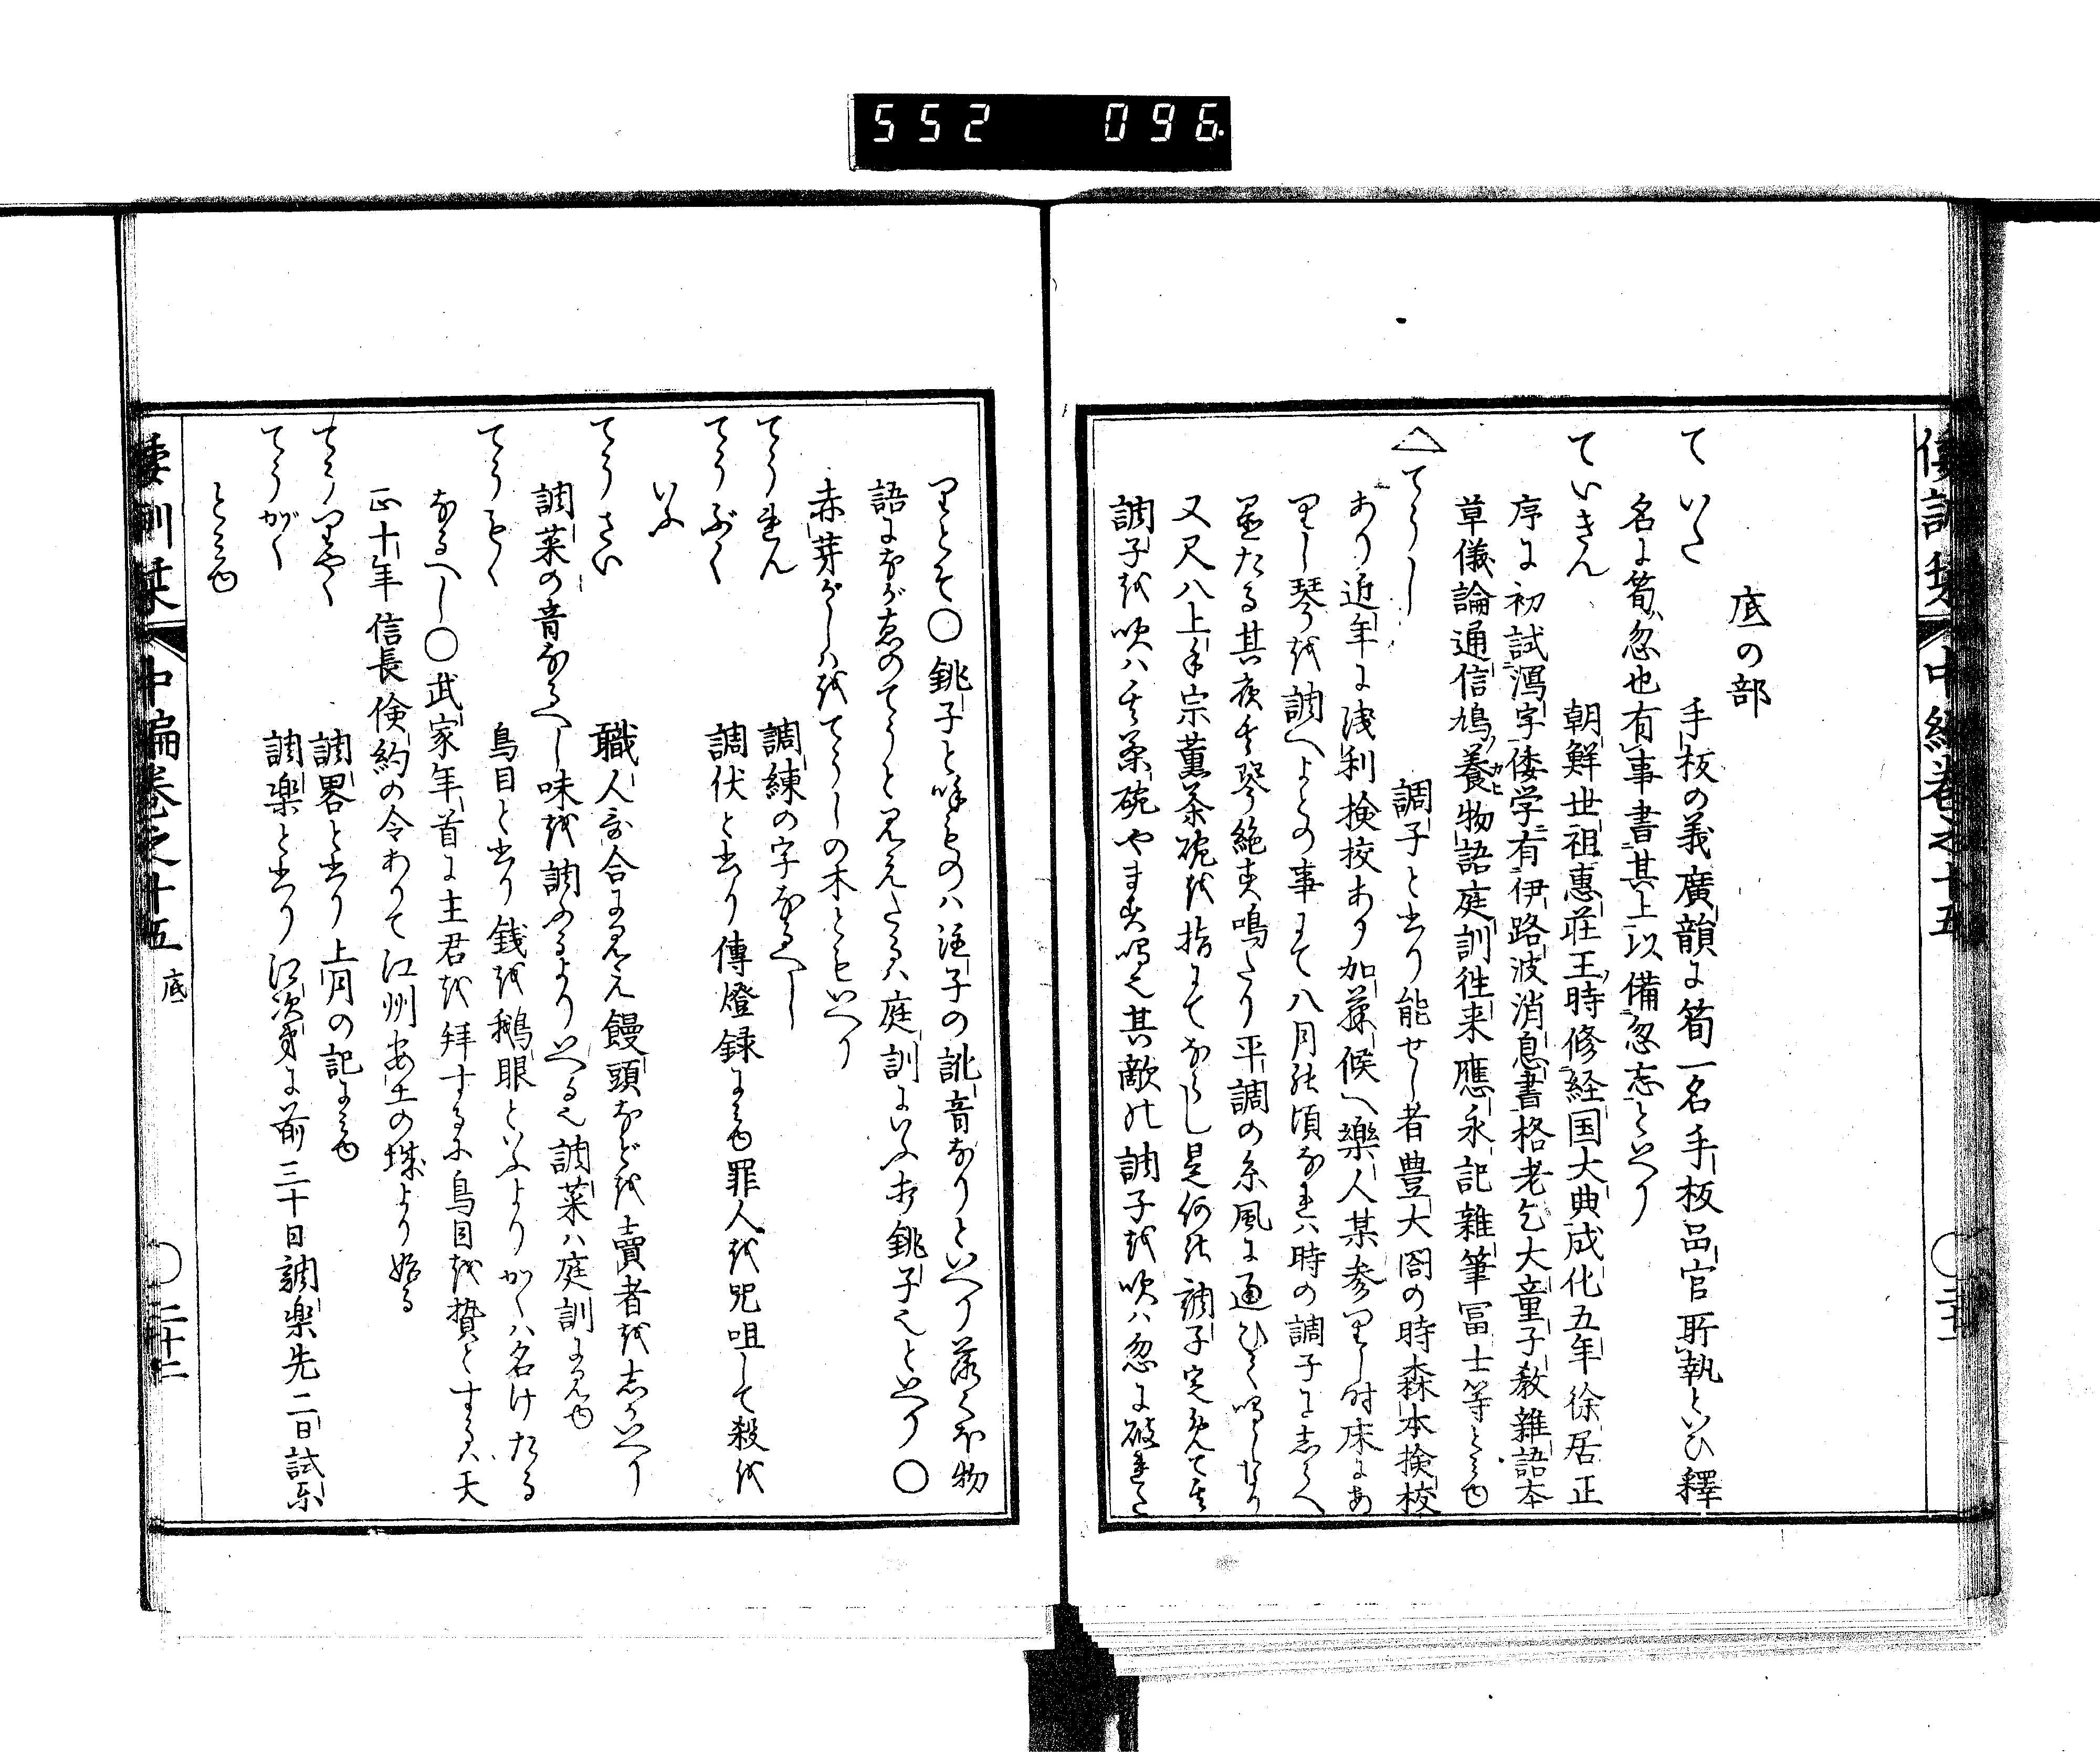 552 096.
底の部
ていた 手板の義廣韻に笏一名手板品官所執といひ釋
名に笏ハ忽也有事書其上以備忽忘といへり
ていきん 朝鮮世祖惠莊王ノ時修経国大典成化五年徐居正
序に初試潟字倭学有伊路波消息書格老乞大童子教雜語本
草儀論通信鳩ノ養カヒ物語庭訓往来應永記雜筆冨士等と見ゆ
△てうし 調子と書り能せし者豊大閤の時森本検校
あり近年に浅利検校あり加藤候へ樂人某参りし時床にあ
りし琴を調へよとの事にて八月の頃なれハ時の調子にしらへ
置たる其夜
又尺八上手宗薫茶碗を指にてならし是何の調子定めて其
調子を吹ハ此茶碗やます鳴也其敵の調子を吹ハ忽に破れた
りとそ○銚子と呼ものハ注子の訛音なりといへり落くほ物
語に
赤芽がしハをてうしの木ともいへり
てうれん 調練の字なるへし
てうぶく 調伏と書り傳燈録に見ゆ罪人を咒咀して殺を
いふ
てうさい 職人哥合に見え饅頭などを賣者をしかいへり
調菜の音なるへし味を調ふるよりいへる也調菜ハ庭訓に見ゆ
てうもく 鳥目と書り銭を鵝眼といふよりかくハ名けたる
なるへし○武家年首に主君を拜するに鳥目を贄とするハ天
正十年信長倹約の令ありて江州安土の城より始る
てうりやく 調畧と書り上月の記に見ゆ
てうがく 調楽と書り江次第に前三十日調楽先二日試楽
と見ゆ
倭訓栞 中編巻之十五 底 ○二十二